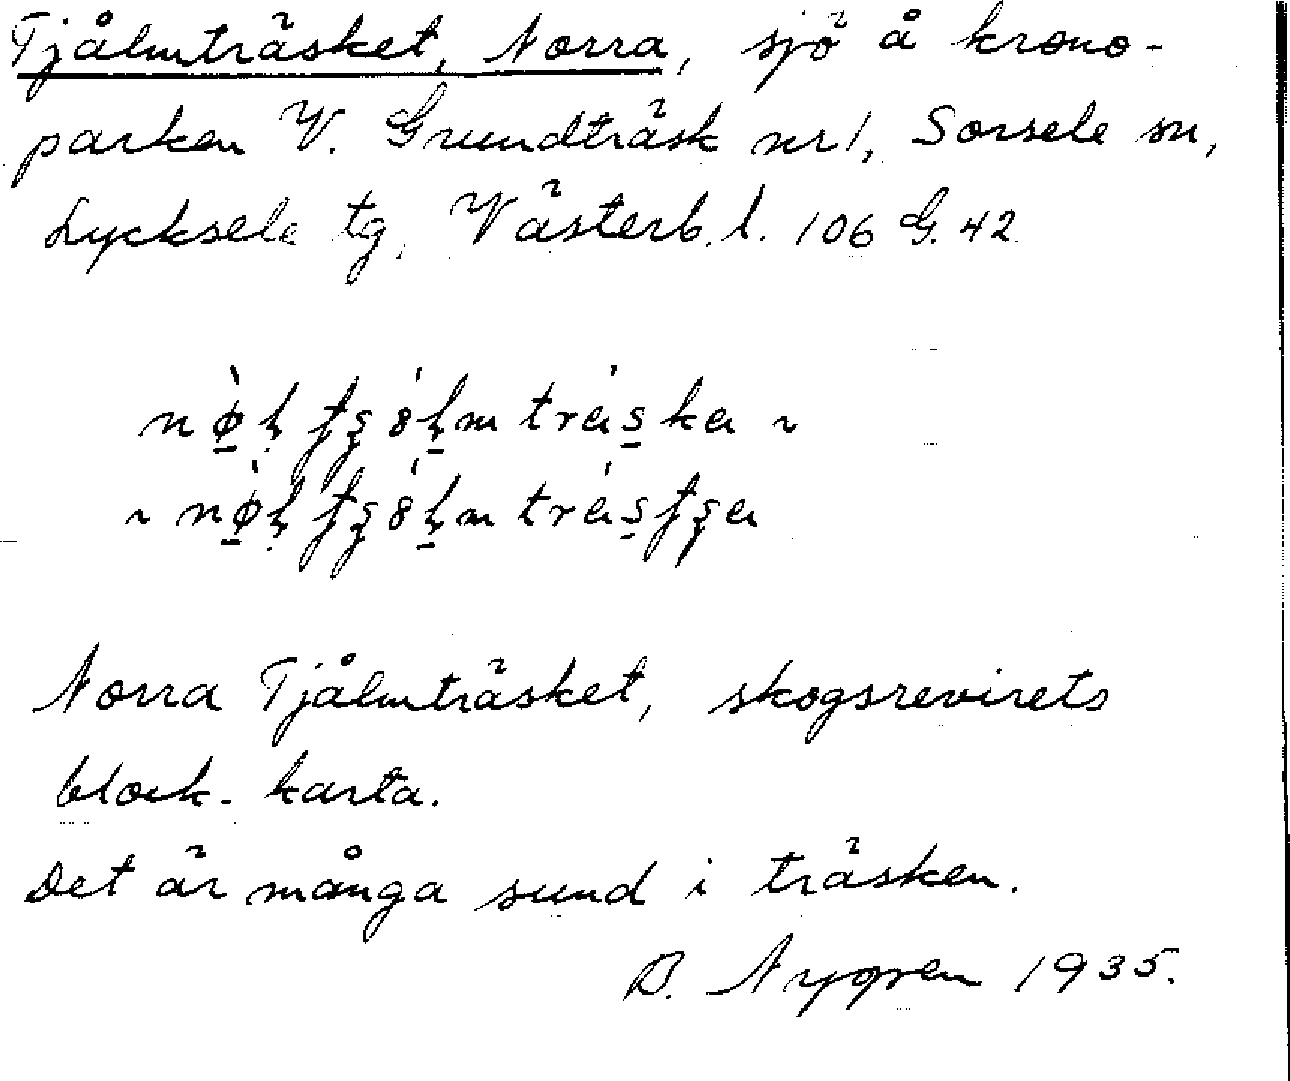 Tjålmträsket, Norra, sjö å krono-
parken V. Grundträsk nr 1, Sorsele sn,
Lycksele tg, Västerb. l. 106 G. 42
Norra Tjålmträsket, skogsrevirets
block-karta.
Det är många sund i träsken.
B. Nygren 1935.